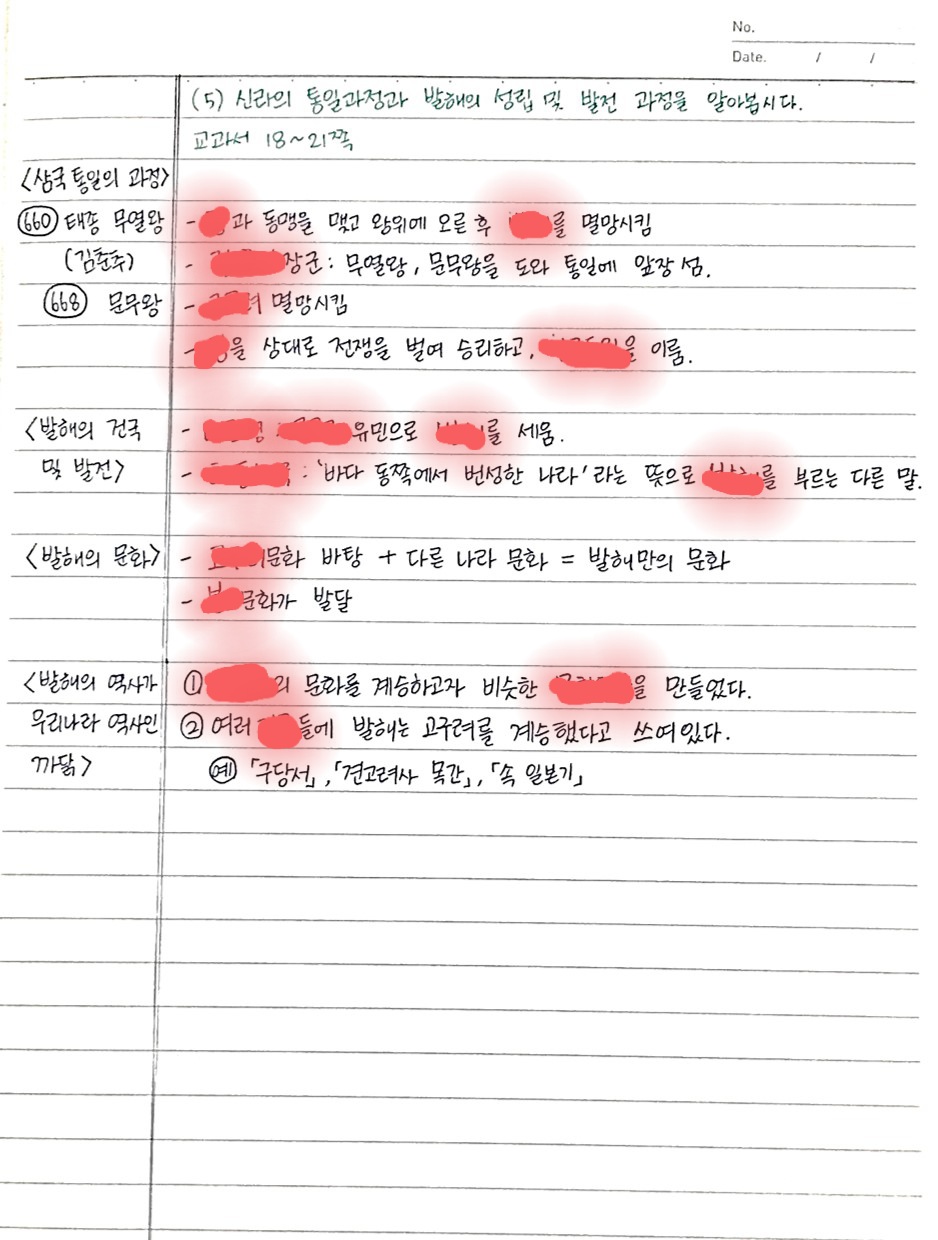 No.
Date. / /
(5) 신라의 통일과정과 발해의 성립 및 발전 과정을 알아봅시다.
교과서 18~21쪽
<삼국 통일의 과정>
660 태종 무열왕 - 과 동맹을 맺고 왕위에 오른 후 를 멸망시킴
(김춘추) - 장군 : 무열왕, 문무왕을 도와 통일에 앞장 섬.
668 문무왕 - 멸망시킴
- 을 상대로 전쟁을 벌여 승리하고, 을 이룸.
<발해의 건국 - 유민으로 를 세움.
및 발전> - : '바다 동쪽에서 번성한 나라' 라는 뜻으로 를 부르는 다른 말.
<발해의 문화> - 문화 바탕 + 다른 나라 문화 = 발해만의 문화
- 문화가 발달
<발해의 역사가 ① 의 문화를 계승하고자 비슷한 을 만들었다.
우리나라 역사인 ② 여러 들에 발해는 고구려를 계승했다고 쓰여있다.
까닭> 예 「구당서」, 「견고려사 목간」, 「속 일본기」